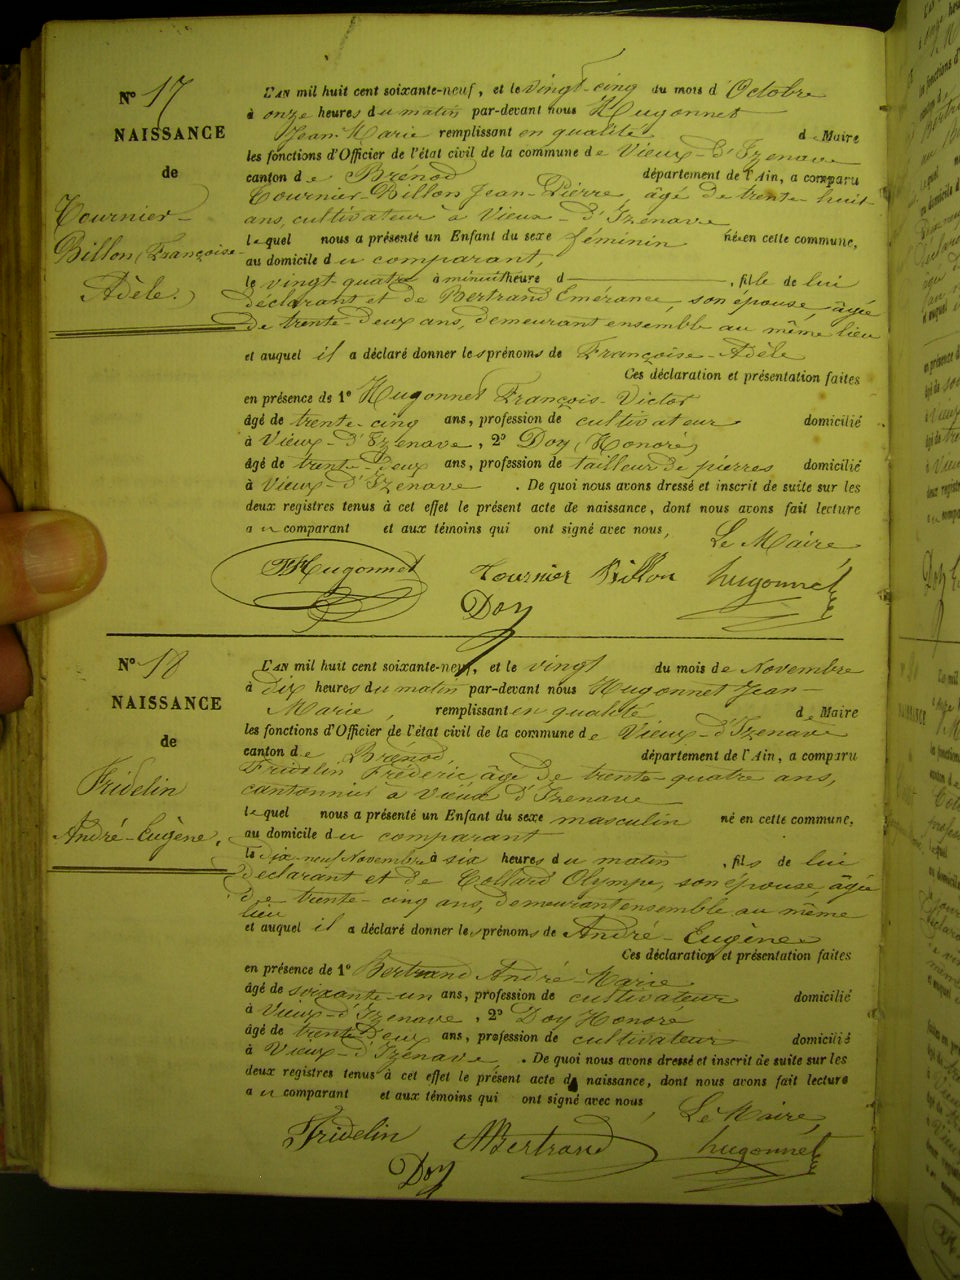 N° 17
NAISSANCE
de
Tournier-
Billon (Françoise-
Adèle.)
L'AN mil huit cent soixante-neuf, et le vingt-cinq du mois d'Octobre
à onze heures du matin par-devant nous Hugonnet
Jean-Marie remplissant en qualité de Maire
les fonctions d'Officier de l'état civil de la commune de Vieux-d'Izenave
canton de Brénod département de l'Ain, a comparu
Tournier-Billon Jean-Pierre, âgé de trente-huit-
ans, cultivateur à Vieux-d'Izenave
lequel nous a présenté un Enfant du sexe féminin née en cette commune,
au domicile du comparant,
le vingt quatre à minuit heure d , fille de lui
déclarant et de Bertrand Emérance, son épouse, âgée
de trente-deux ans, demeurant ensemble au même lieu
et auquel il a déclaré donner les prénoms de Françoise-Adèle
Ces déclaration et présentation faites
en présence de 1° Hugonnet François-Victor
âgé de trente-cinq ans, profession de cultivateur domicilié
à Vieux-d'Izenave, 2° Doy (Honoré)
âgé de trente-deux ans, profession de tailleur de pierres domicilié
à Vieux-d'Izenave . De quoi nous avons dressé et inscrit de suite sur les
deux registres tenus à cet effet le présent acte de naissance, dont nous avons fait lecture
au comparant et aux témoins qui ont signé avec nous,
Le Maire
Hugonnet Tournier Billon hugonnet
Doy
N° 18
NAISSANCE
de
Fridelin
André-Eugène.
L'AN mil huit cent soixante-neuf, et le vingt du mois de Novembre
à dix heures du matin par-devant nous Hugonnet Jean-
Marie, remplissant en qualité de Maire
les fonctions d'Officier de l'état civil de la commune de Vieux-d'Izenave
canton de Brénod, département de l'Ain, a comparu
Fridelin Fréderic, âgé de trente-quatre ans,
cantonnier à Vieux d'Izenave
lequel nous a présenté un Enfant du sexe masculin né en cette commune,
au domicile du comparant
le dix-neuf Novembre à six heures du matin , fils de lui
déclarant et de Collard Olympe, son épouse, âgée
de trente-cinq ans, demeurant ensemble au même
lieu
et auquel il a déclaré donner les prénoms de André-Eugène
Ces déclaration et présentation faites
en présence de 1° Bertrand André-Marie
âgé de soixante-un ans, profession de cultivateur domicilié
à Vieux-d'Izenave, 2° Doy Honoré
âgé de trente deux ans, profession de cultivateur domicilié
à Vieux-d'Izenave, . De quoi nous avons dressé et inscrit de suite sur les
deux registres tenus à cet effet le présent acte de naissance, dont nous avons fait lecture
au comparant et aux témoins qui ont signé avec nous,
Le Maire,
Fridelin ABertrand hugonnet
Doy